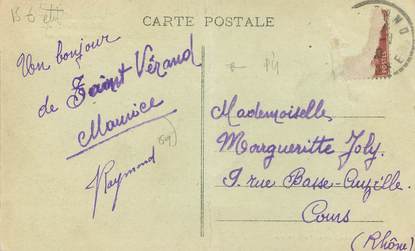 CARTE POSTALE
Un bonjour
de Saint Vérand
Maurice
Raymond
Mademoiselle
Margueritte Joly
9 rue Basse-Cuzille.
Cours
(Rhône)